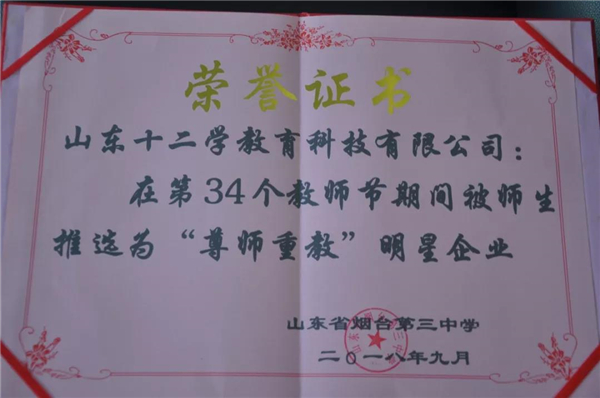 荣誉证书
山东十二学教育科技有限公司：
在第34个教师节期间被师生
推选为“尊师重教”明星企业
山东省烟台第三中学
二〇一八年九月